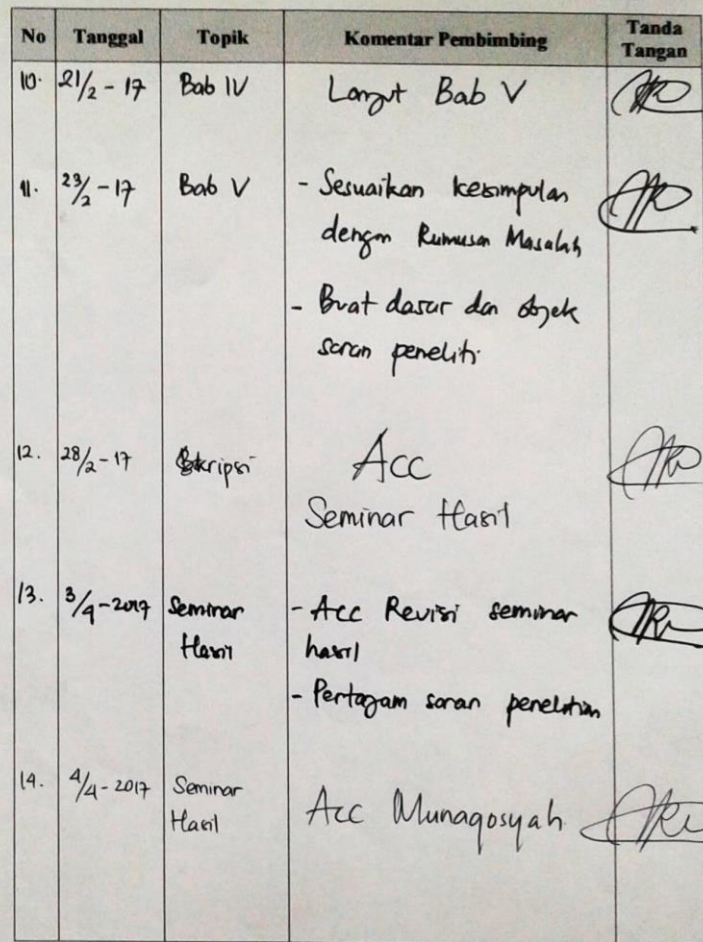 No Tanggal Topik Komentar Pembimbing Tanda Tangan
10. 21/2 - 17 Bab IV Lanjut Bab V
11. 23/2 - 17 Bab V - Sesuaikan kesimpulan
dengan Rumusan Masalah
- Buat dasar dan objek
saran peneliti
12. 28/2 - 17 Skripsi Acc
Seminar Hasil
13. 3/4 - 2017 Seminar - Acc Revisi seminar
Hasil hasil
- Pertajam saran penelitian
14. 4/4 - 2017 Seminar Acc Munaqosyah
Hasil